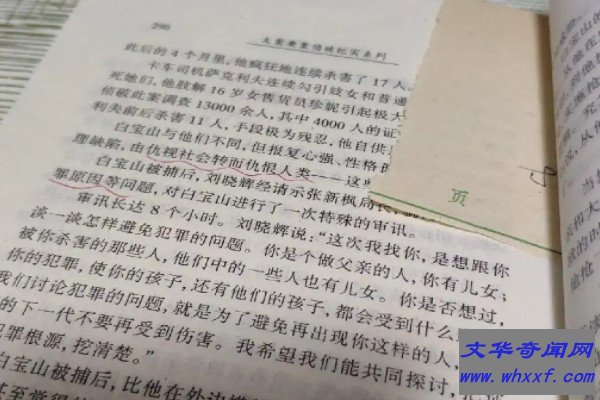 290
大案要案侦破纪实系列
此后的4个月里,他疯狂地连续杀害了17人
卡车司机萨克利夫连续勾引妓女和普通
死她们,他肢解16岁女售货员珍妮引起极大
侦破此案调查13000余人,其中4000人的证
利夫前后杀害11人,手段极为残忍,他自供
白宝山与他们不同,但报复心强、性格
理缺陷,由仇视社会转而仇恨人类——这
白宝山被捕后,刘晓辉经请示张新枫局长,
罪原因等问题,对白宝山进行了一次特殊的审讯。
审讯长达8个小时。刘晓辉说:“这次我找你,是想跟你
谈一谈怎样避免犯罪的问题。你是个做父亲的人,你有儿女;
被你杀害的那些人,他们中的一些人也有儿女。你是否想过,
你的犯罪,使你的孩子,还有他们的孩子,都会受到什么
我们讨论犯罪的问题,就是为了避免再出现你这样的人,
的下一代不要再受到伤害。我希望我们能共同探讨,
犯罪根源,挖清楚。”
白宝山被捕后,比他在外边
甚至觉得
页
文华奇闻网
www.whxxf.com